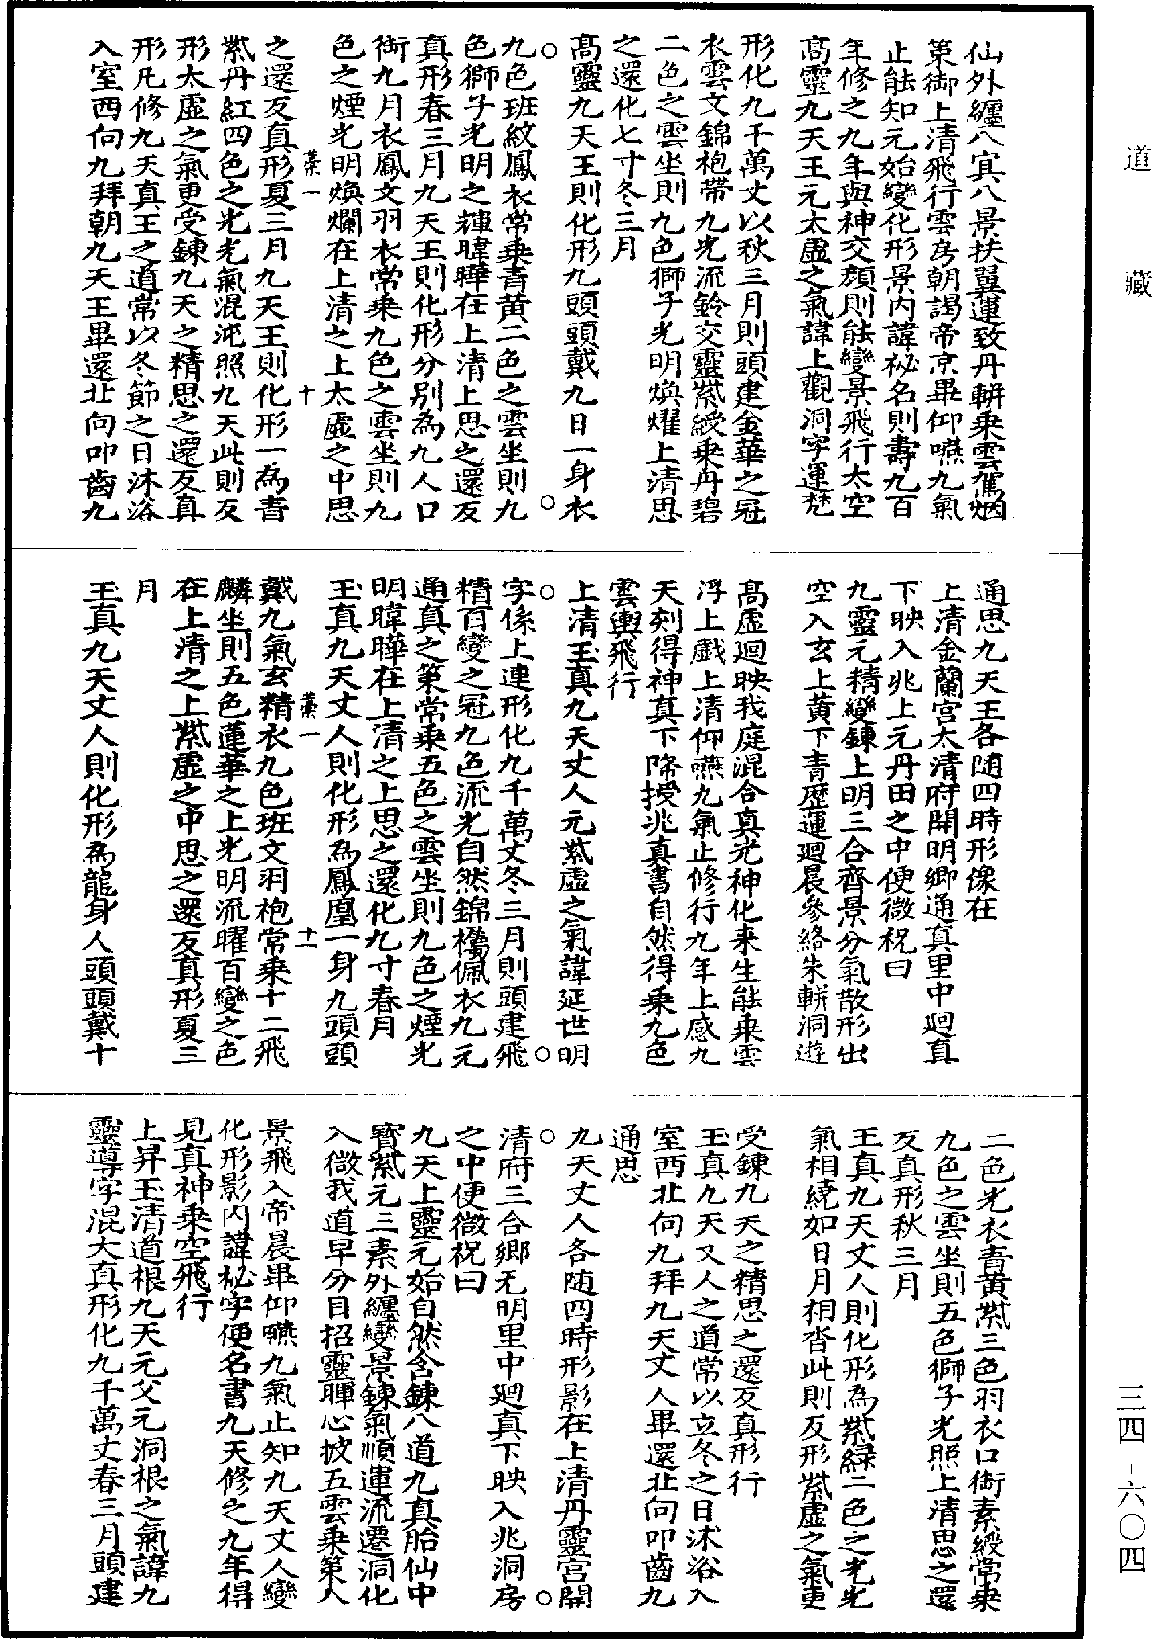 道藏
仙外纏八宜八景扶翼運致丹軿乘雲駕烟
策御上清飛行雲房朝謁帝京畢仰嚥九氣
止能知元始變化形景內諱祕名則壽九百
年修之九年與神交顏則能變景飛行太空
高靈九天王元太虛之氣諱上觀洞字運梵
形化九千萬丈以秋三月則頭建金華之冠
衣雲文錦袍帶九光流鈴交靈紫綬乘丹碧
二色之雲坐則九色獅子光明煥耀上清思
之還化七寸冬三月
高靈九天王則化形九頭頭戴九日一身衣
九色班紋鳳衣常乘青黃二色之雲坐則九
色獅子光明之輝暐曄在上清上思之還反
真形春三月九天王則化形分別為九人口
銜九月衣鳳文羽衣常乘九色之雲坐則九
色之煙光明煥爛在上清之上太虛之中思
藁一 十
之還反真形夏三月九天王則化形一為青
紫丹紅四色之光光氣混沌照九天此則反
形太虛之氣更受鍊九天之精思之還反真
形凡修九天真王之道常以冬節之日沐浴
入室西向九拜朝九天王畢還北向叩齒九
通思九天王各随四時形像在
上清金蘭宮太清府開明鄉通真里中迴真
下映入兆上元丹田之中便微祝曰
九靈元精變鍊上明三合齊景分氣散形出
空入玄上黃下青歷運迴晨參絡朱軿洞遊
高虛迴映我庭混合真光神化來生能乘雲
浮上戲上清仰嚥九氣止修行九年上感九
天刻得神真下降授兆真書自然得乘九色
雲輿飛行
上清玉真九天丈人元紫虛之氣諱延世明
字係上連形化九千萬丈冬三月則頭建飛
精百變之冠九色流光自然錦襦佩衣九元
通真之策常乘五色之雲坐則九色之煙光
明暐曄在上清之上思之還化九寸春月
玉真九天丈人則化形為鳳凰一身九頭頭
藁一 十一
戴九氣玄精衣九色班文羽袍常乘十二飛
麟坐則五色蓮華之上光明流曜百變之色
在上清之上紫虛之中思之還反真形夏三
月
玉真九天丈人則化形為龍身人頭頭戴十
二色光衣青黃紫三色羽衣口銜素綬常乘
九色之雲坐則五色獅子光照上清思之還
反真形秋三月
玉真九天丈人則化形為紫綠二色之光光
氣相繞如日月相沓此則反形紫虛之氣更
受鍊九天之精思之還反真形行
玉真九天丈人之道常以立冬之日沐浴入
室西北向九拜九天丈人畢還北向叩齒九
通思
九天丈人各随四時形影在上清丹靈宮開
清府三合鄉无明里中迴真下映入兆洞房
之中便微祝曰
九天上靈元始自然含鍊八道九真胎仙中
寶紫元三素外纏變景鍊氣順運流遷洞化
入微我道早分目招靈暉心披五雲乘策人
景飛入帝晨畢仰嚥九氣止知九天丈人變
化形影內諱祕字便名書九天修之九年得
見真神乘空飛行
上昇玉清道根九天元父元洞根之氣諱九
靈導字混大真形化九千萬丈春三月頭建
三四－六〇四